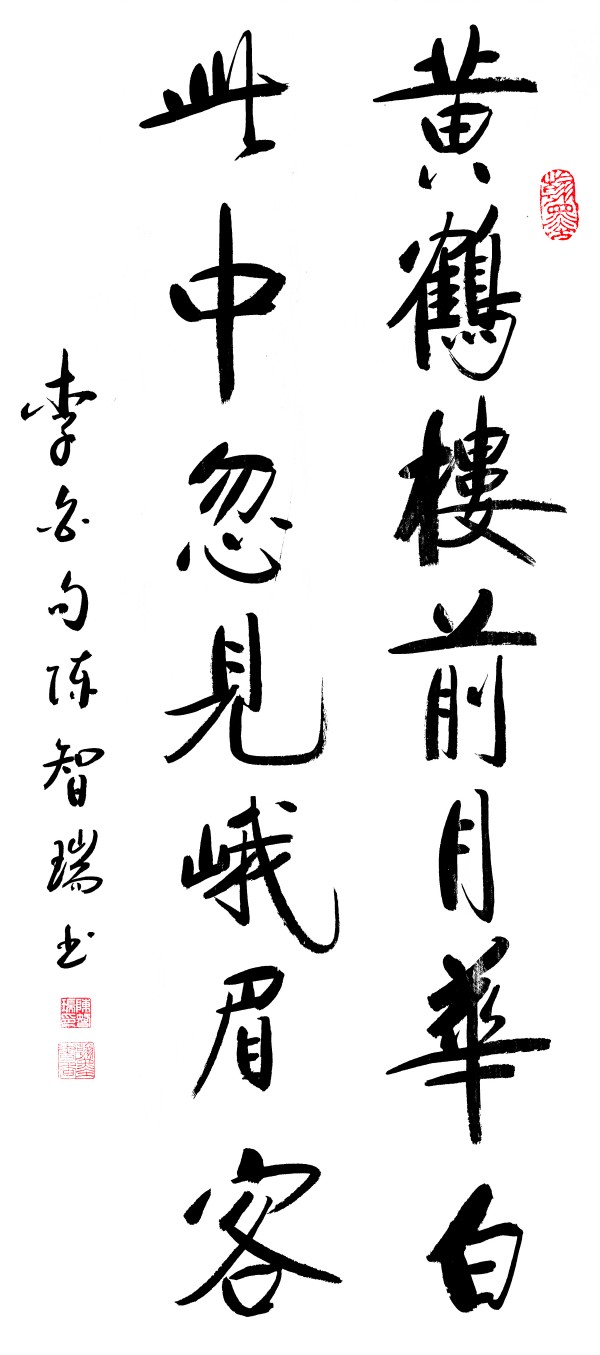 黄鶴樓前月華白
此中忽見峨眉客
李白句陈智瑞书